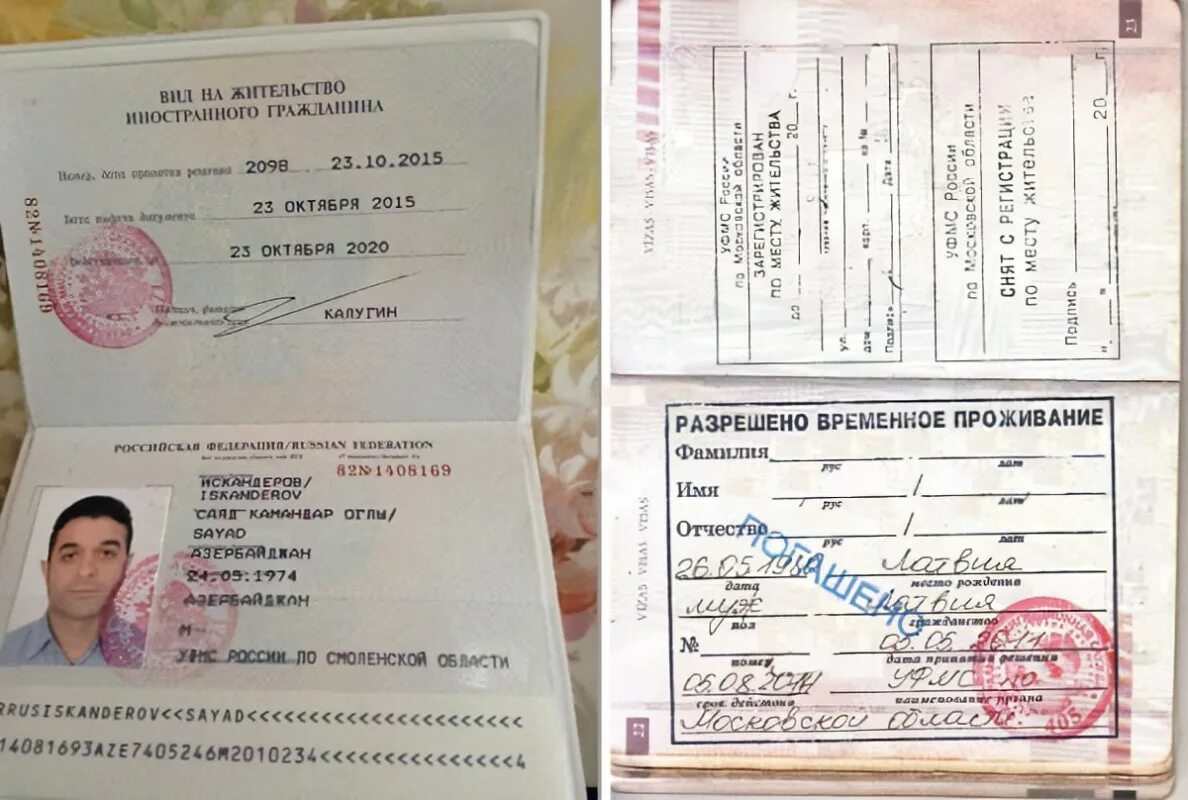 ВИД НА ЖИТЕЛЬСТВО
ИНОСТРАННОГО ГРАЖДАНИНА
Номер, дата принятия решения 2098 23.10.2015
Дата выдачи документа 23 ОКТЯБРЯ 2015
23 ОКТЯБРЯ 2020
82№1408169
КАЛУГИН
РОССИЙСКАЯ ФЕДЕРАЦИЯ/RUSSIAN FEDERATION
82№1408169
ИСКАНДЕРОВ/
ISKANDEROV
САЯД КАМАНДАР ОГЛЫ/
SAYAD
АЗЕРБАЙДЖАН
24.05.1974
АЗЕРБАЙДЖАН
М
УФМС РОССИИ ПО СМОЛЕНСКОЙ ОБЛАСТИ
RUSISKANDEROV<<SAYAD<<<<<<<<<<<<<<<<<<<<<<
14081693AZE7405246M2010234<<<<<<<<<<<<<<<<4
23
VIZAS VISAS
УФМС России
по Московской области
ЗАРЕГИСТРИРОВАН
ПО МЕСТУ ЖИТЕЛЬСТВА
до 20 г.
ул.
дом корп. кв №
Подпись Дата
УФМС России
по Московской области
СНЯТ С РЕГИСТРАЦИИ
по месту жительства
Подпись
" " 20 г.
VIZAS VISAS VISAS
РАЗРЕШЕНО ВРЕМЕННОЕ ПРОЖИВАНИЕ
Фамилия
рус лат
Имя /
рус лат
Отчество /
рус лат
26.05.198 Латвия
дата место рождения
муж Латвия
пол гражданство
№ 05.05.2011
дата принятия решения
05.08.2014 УФМС по
срок действия наименование органа
Московской области
ПОГАШЕНО
405
23